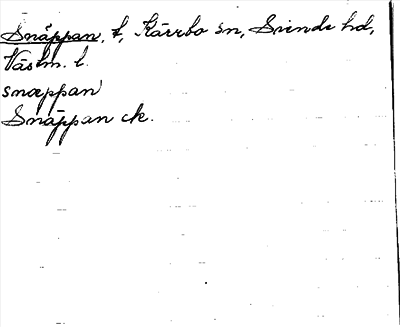 Snäppan, t, Kärrbo sn, Siende hd,
Västm. l.
snæppan
Snäppan ek.